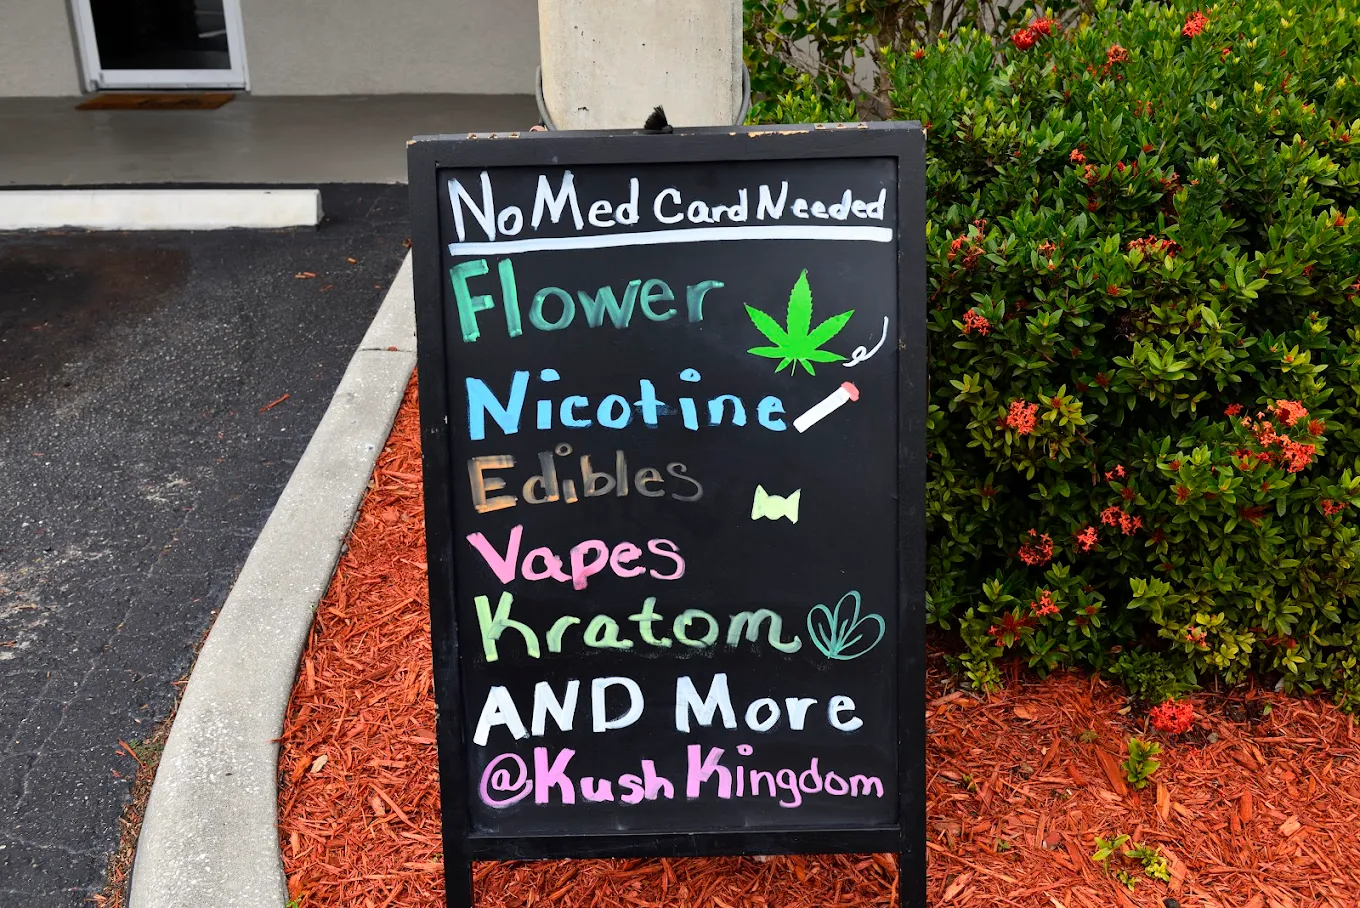 No Med Card Needed
Flower
Nicotine
Edibles
Vapes
Kratom
AND More
@Kush Kingdom